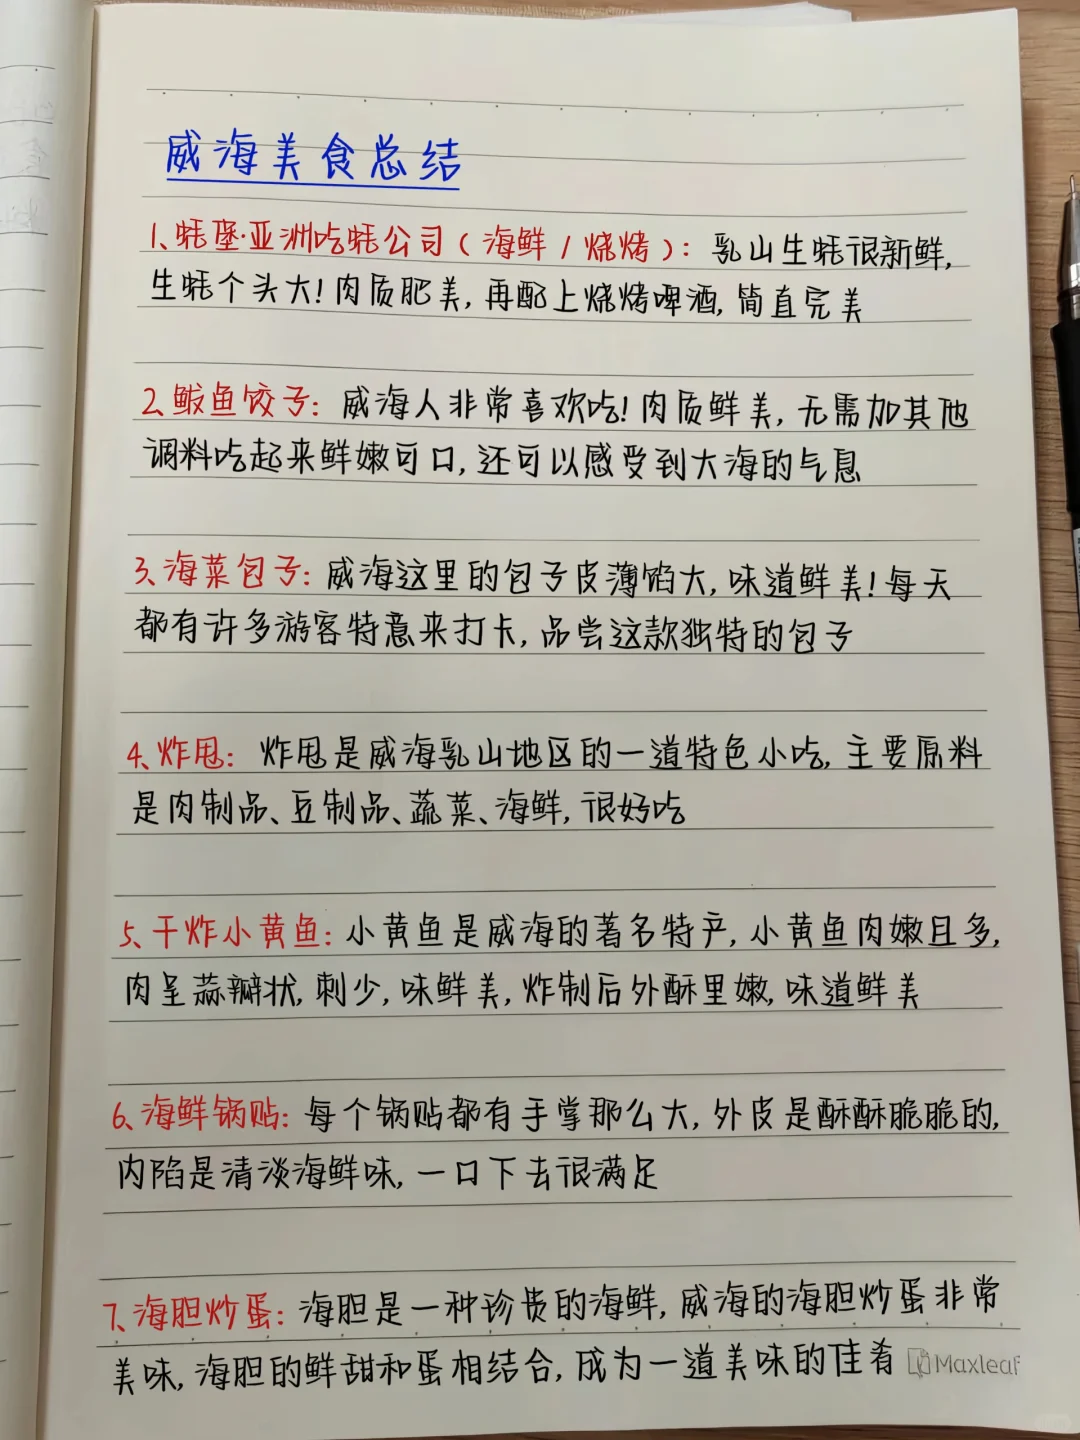 威海美食总结
1、蚝堡·亚洲吃蚝公司(海鲜/烧烤):乳山生蚝很新鲜,
生蚝个头大!肉质肥美,再配上烧烤啤酒,简直完美
2、鲅鱼饺子:威海人非常喜欢吃!肉质鲜美,无需加其他
调料吃起来鲜嫩可口,还可以感受到大海的气息
3、海菜包子:威海这里的包子皮薄馅大,味道鲜美!每天
都有许多游客特意来打卡,品尝这款独特的包子
4、炸甩:炸甩是威海乳山地区的一道特色小吃,主要原料
是肉制品、豆制品、蔬菜、海鲜,很好吃
5、干炸小黄鱼:小黄鱼是威海的著名特产,小黄鱼肉嫩且多,
肉呈蒜瓣状,刺少,味鲜美,炸制后外酥里嫩,味道鲜美
6、海鲜锅贴:每个锅贴都有手掌那么大,外皮是酥酥脆脆的,
内陷是清淡海鲜味,一口下去很满足
7、海胆炒蛋:海胆是一种珍贵的海鲜,威海的海胆炒蛋非常
美味,海胆的鲜甜和蛋相结合,成为一道美味的佳肴
Maxleaf